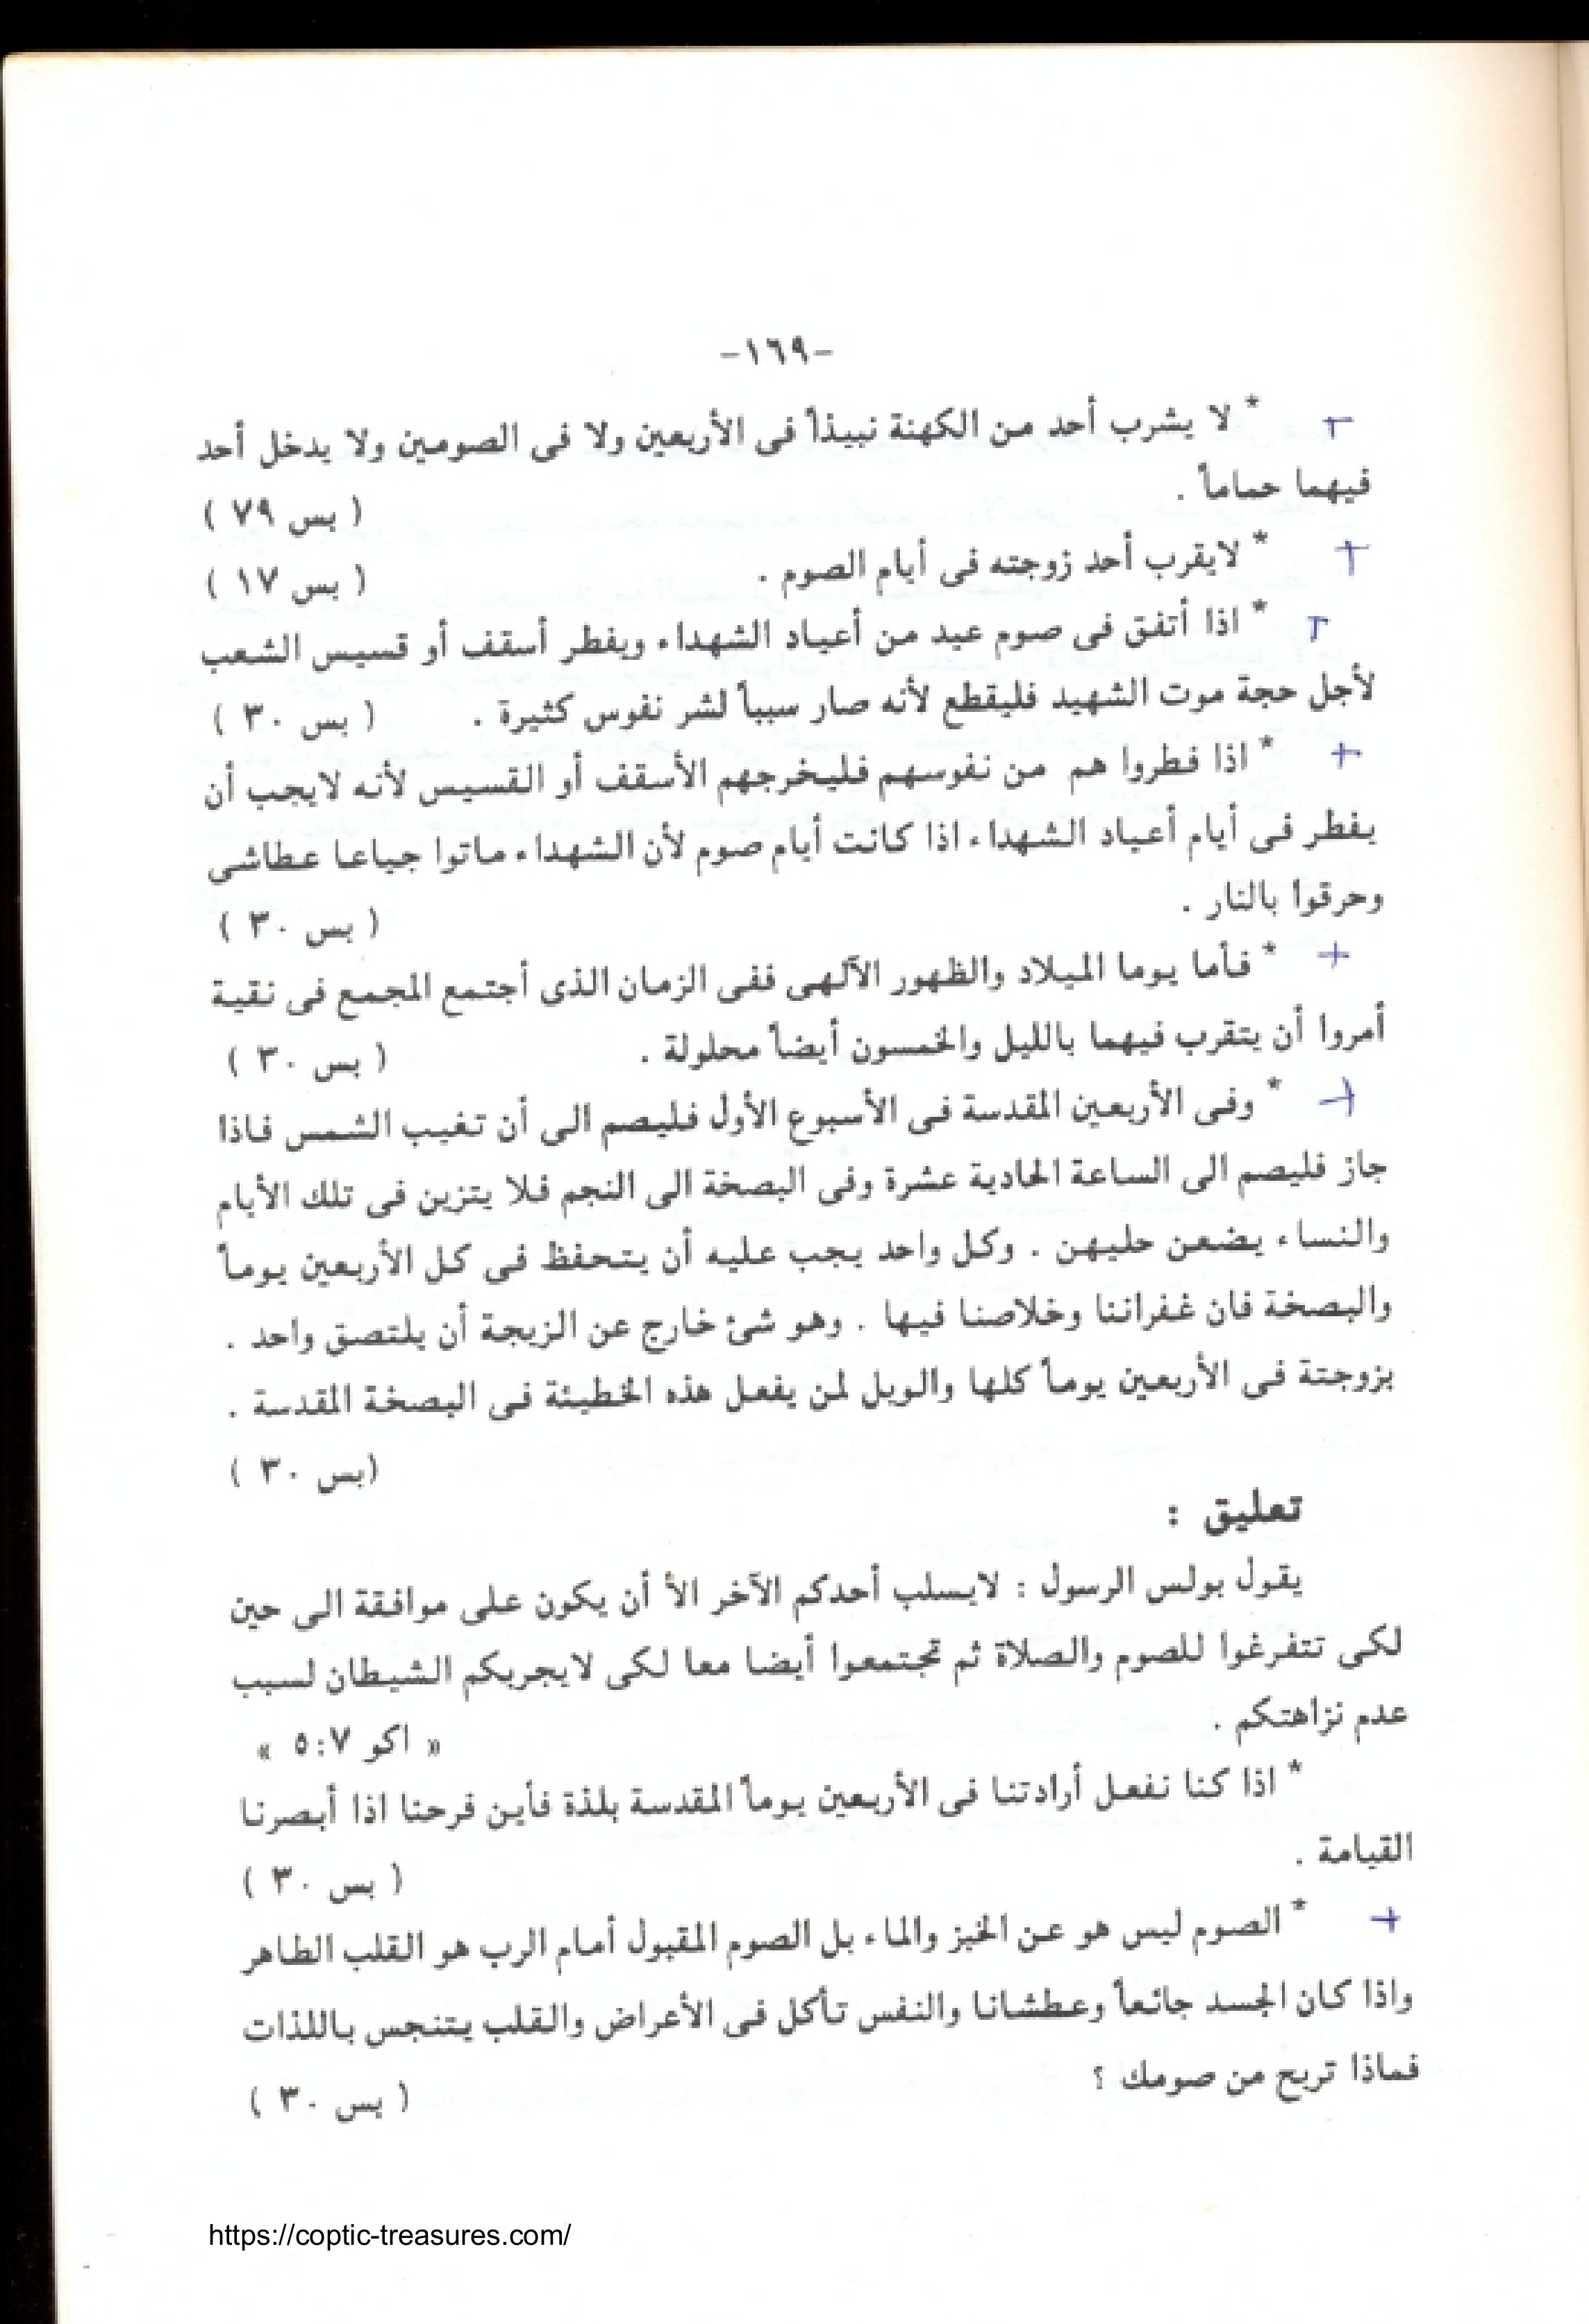 -١٦٩-
* لا يشرب أحد من الكهنة نبيذاً فى الأربعين ولا فى الصومين ولا يدخل أحد
فيهما حماماً .
( بس ٧٩ )
* لايقرب أحد زوجته فى أيام الصوم .
( بس ١٧ )
* اذا أتفق فى صوم عيد من أعياد الشهداء ويفطر أسقف أو قسيس الشعب
لأجل حجة موت الشهيد فليقطع لأنه صار سبباً لشر نفوس كثيرة . ( بس ٣٠ )
* اذا فطروا هم من نفوسهم فليخرجهم الأسقف أو القسيس لأنه لايجب أن
يفطر فى أيام أعياد الشهداء اذا كانت أيام صوم لأن الشهداء ماتوا جياعا عطاشى
وحرقوا بالنار .
( بس ٣٠ )
* فأما يوما الميلاد والظهور الآلهى ففى الزمان الذى أجتمع المجمع فى نقية
أمروا أن يتقرب فيهما بالليل والخمسون أيضاً محلولة .
( بس ٣٠ )
* وفى الأربعين المقدسة فى الأسبوع الأول فليصم الى أن تغيب الشمس فاذا
جاز فليصم الى الساعة الحادية عشرة وفى البصخة الى النجم فلا يتزين فى تلك الأيام
والنساء يضعن حليهن . وكل واحد يجب عليه أن يتحفظ فى كل الأربعين يوماً
والبصخة فان غفراننا وخلاصنا فيها . وهو شئ خارج عن الزيجة أن يلتصق واحد .
بزوجتة فى الأربعين يوماً كلها والويل لمن يفعل هذه الخطيئة فى البصخة المقدسة .
(بس ٣٠ )
تعليق :
يقول بولس الرسول : لايسلب أحدكم الآخر الأ أن يكون على موافقة الى حين
لكى تتفرغوا للصوم والصلاة ثم تجتمعوا أيضا معا لكى لايجربكم الشيطان لسبب
عدم نزاهتكم .
« اكو ٥:٧ »
* اذا كنا نفعل أرادتنا فى الأربعين يوماً المقدسة بلذة فأين فرحنا اذا أبصرنا
القيامة .
( بس ٣٠ )
* الصوم ليس هو عن الخبز والماء بل الصوم المقبول أمام الرب هو القلب الطاهر
واذا كان الجسد جائعاً وعطشانا والنفس تأكل فى الأعراض والقلب يتنجس باللذات
فماذا تربح من صومك ؟
( بس ٣٠ )
https://coptic-treasures.com/